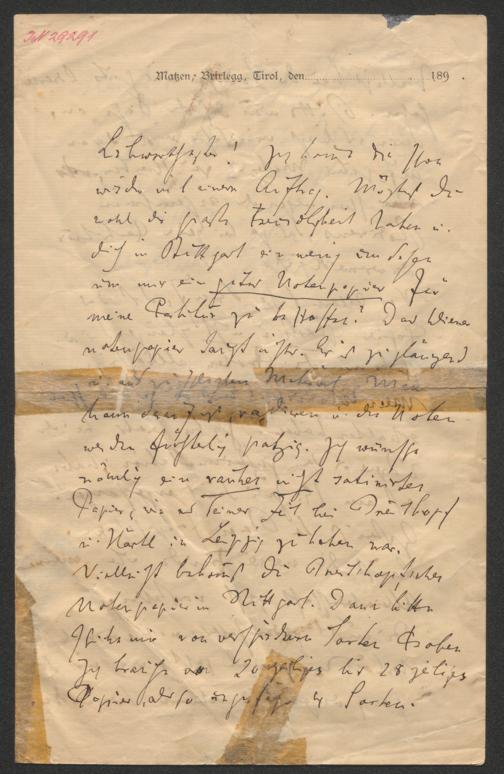 JN 29291
Matzen, Brixlegg, Tirol, den 189 .
Ehrwerthester! Ich komme Dir schon
wieder mit einem Auftrag. Möchtest Du
wohl die große Freundlichkeit haben u.
dich in Stuttgart ein wenig um sehen
um mir ein gutes Notenpapier für
meine Partitur zu beschaffen? Das Wiener
notenpapier taugt nichts. Er ist zu glänzend
u. auf
kann darauf radieren u. die Noten
werden patzig. Ich wünsche
nämlich ein rauhes nicht satinirtes
Papier, wie es seiner Zeit bei Breitkopf
u. Härtl in Leipzig zu haben war.
Vielleicht bekommst Du Breitkopfsches
Notenpapier in Stuttgart. Dann bitte
schicke mir von verschiedenen Sorten Proben
Ich brauche 20zeiliges bis 28zeiliges
Papier, also 4 Sorten.